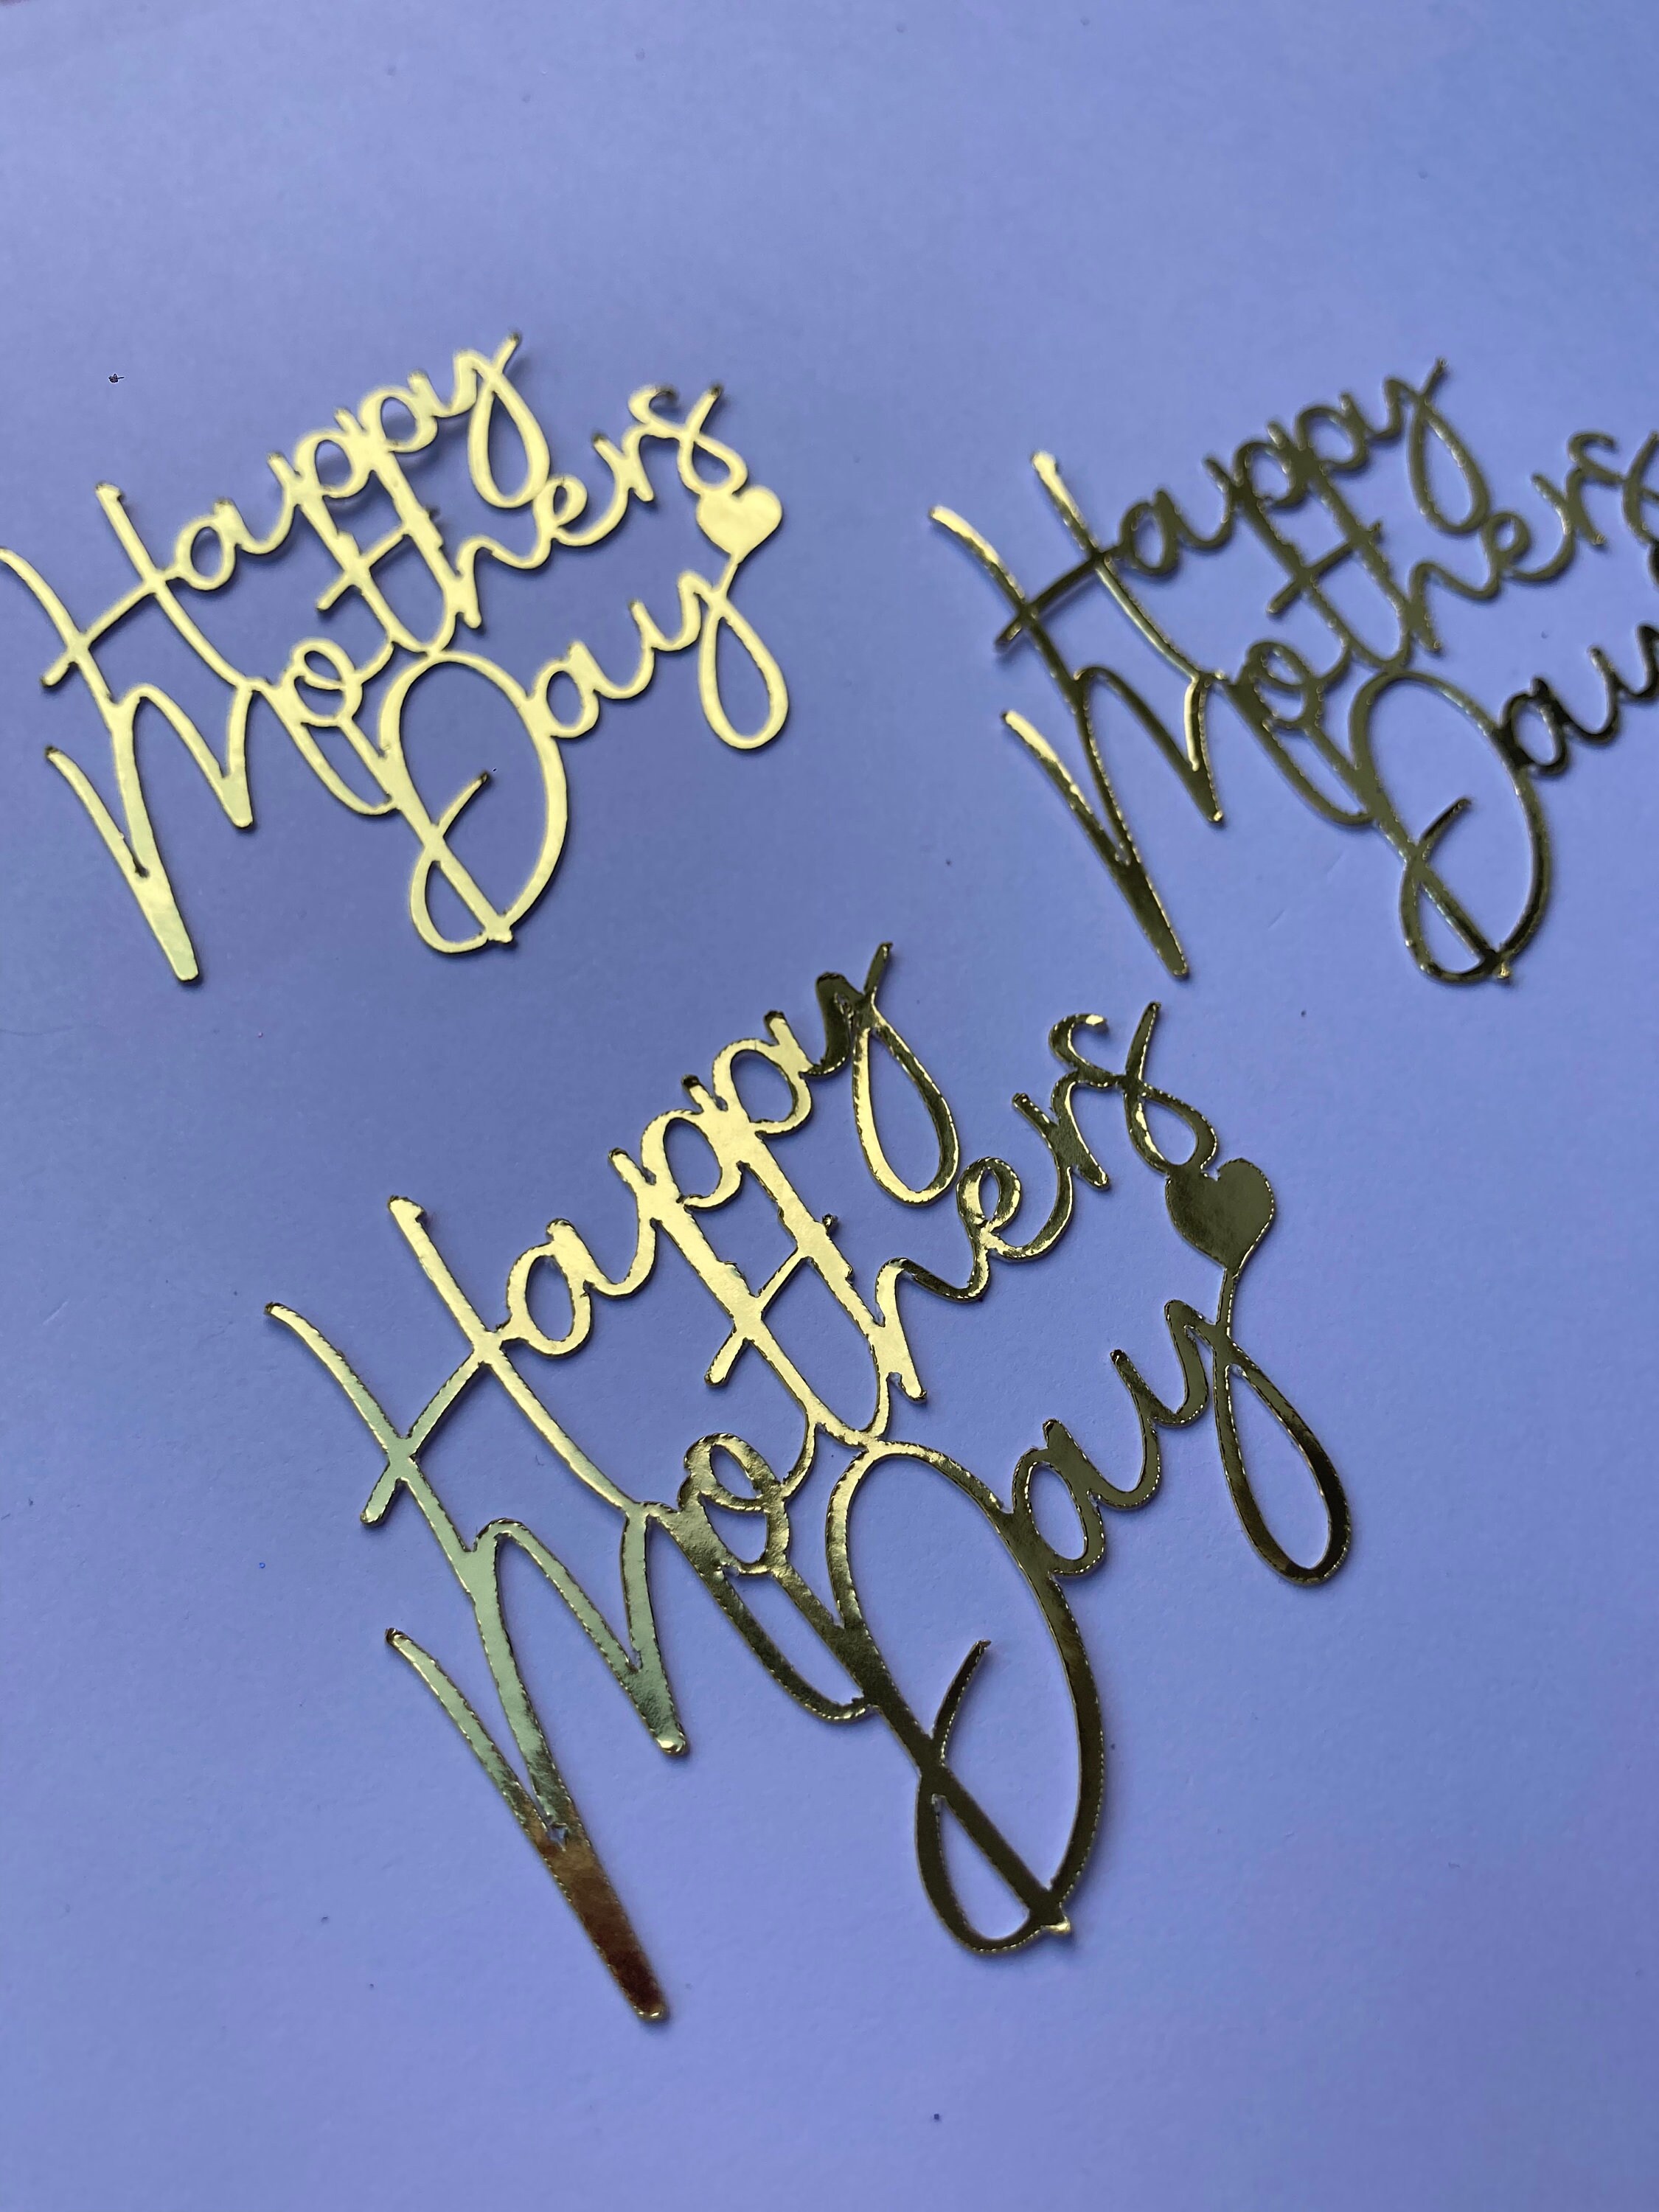 Happy
Mothers
Day
Happy
Mothers
Day
Happy
Mothers
Day